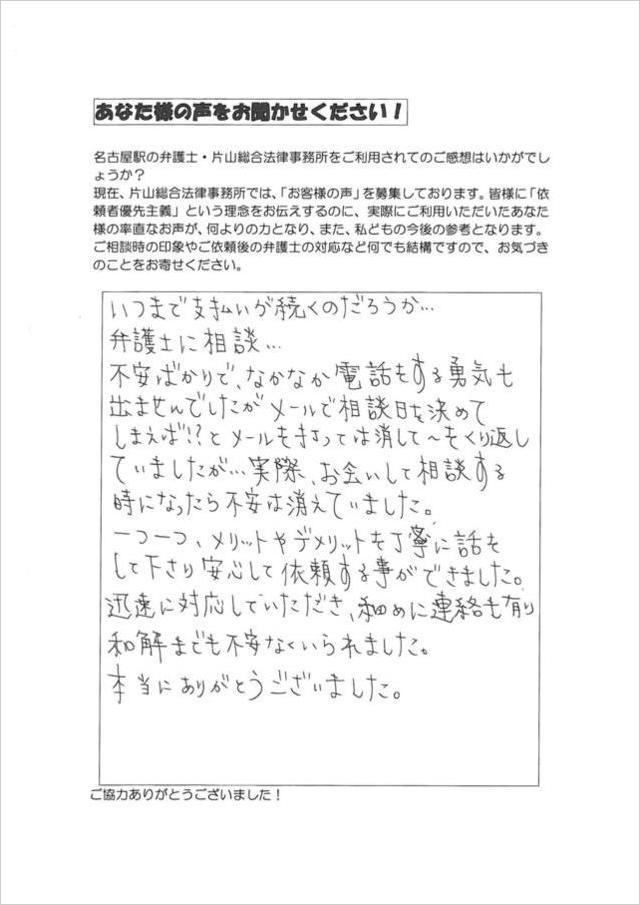 あなた様の声をお聞かせください！
名古屋駅の弁護士・片山総合法律事務所をご利用されてのご感想はいかがでし
ょうか？
現在、片山総合法律事務所では、「お客様の声」を募集しております。皆様に「依
頼者優先主義」という理念をお伝えするのに、実際にご利用いただいたあなた
様の率直なお声が、何よりの力となり、また、私どもの今後の参考となります。
ご相談時の印象やご依頼後の弁護士の対応など何でも結構ですので、お気づき
のことをお寄せください。
いつまで支払いが続くのだろうか…
弁護士に相談…
不安ばかりで、なかなか電話をする勇気も
出ませんでしたがメールで相談日を決めて
しまえば!?とメールを打っては消して～をくり返し
ていましたが…実際、お会いして相談する
時になったら不安は消えていました。
一つ一つ、メリットやデメリットを丁寧に話を
して下さり安心して依頼する事ができました。
迅速に対応していただき、細めに連絡も有り
和解までも不安なくいられました。
本当にありがとうございました。
ご協力ありがとうございました！